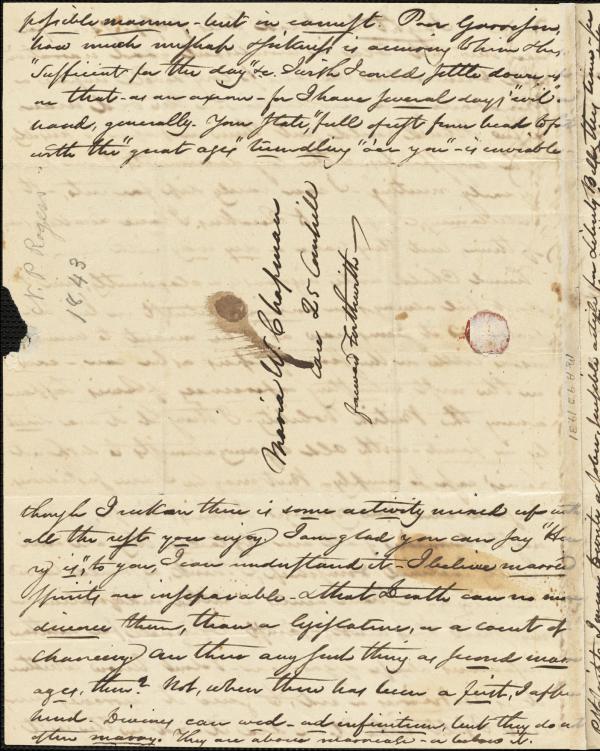 possible manner - but in earnest. Poor Garrison,
how much mishap & sickness is accruing to him & his,
"Sufficient for the day" &c. I wish I could settle down
on that - as an axiom - for I have several days' "evil"
hand, generally. Your State, "full of rest from head to foot
with the "great ages" trundling "o'er you" - is enviable
Maria W. Chapman
Care 25 Cornhill
forward forthwith
N. P. Rogers
1843.
though I reckon there is some activity mixed up with
all the rest you enjoy. I am glad you can say "Hen
ry is", to you, I can understand it - I believe married
spirits are inseparable - & that Death can no more
divorce them, than a legislature, or a court of
chancery. Are there any such thing as second marri
ages, then? Not, when there has been a first, I appre
hend. Divines can wed - ad infinitum, but they do not
often marry. They are above marriage - or below it.